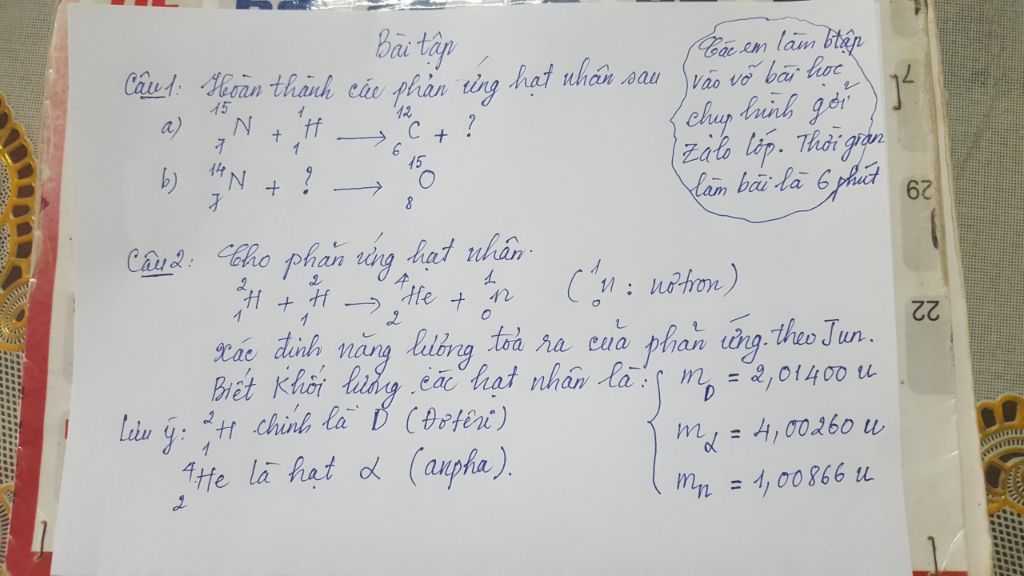 Bài tập
Câu 1: Hoàn thành các phản ứng hạt nhân sau
a) ¹⁵₇N + ¹₁H → ¹²₆C + ?
b) ¹⁴₇N + ? → ¹⁵₈O
Các em làm btập
vào vỡ bài học
chụp hình gởi
Zalo lớp. Thời gian
làm bài là 6 phút
Câu 2: Cho phản ứng hạt nhân.
²₁H + ²₁H → ⁴₂He + ¹₀n (¹₀n : nơtron)
Xác định năng lượng tỏa ra của phản ứng. theo Jun.
Biết Khối lượng các hạt nhân là:
m_D = 2,01400 u
m_α = 4,00260 u
m_n = 1,00866 u
Lưu ý: ²₁H chính là D (Đơtêri)
⁴₂He là hạt α (anpha).
7
29
22